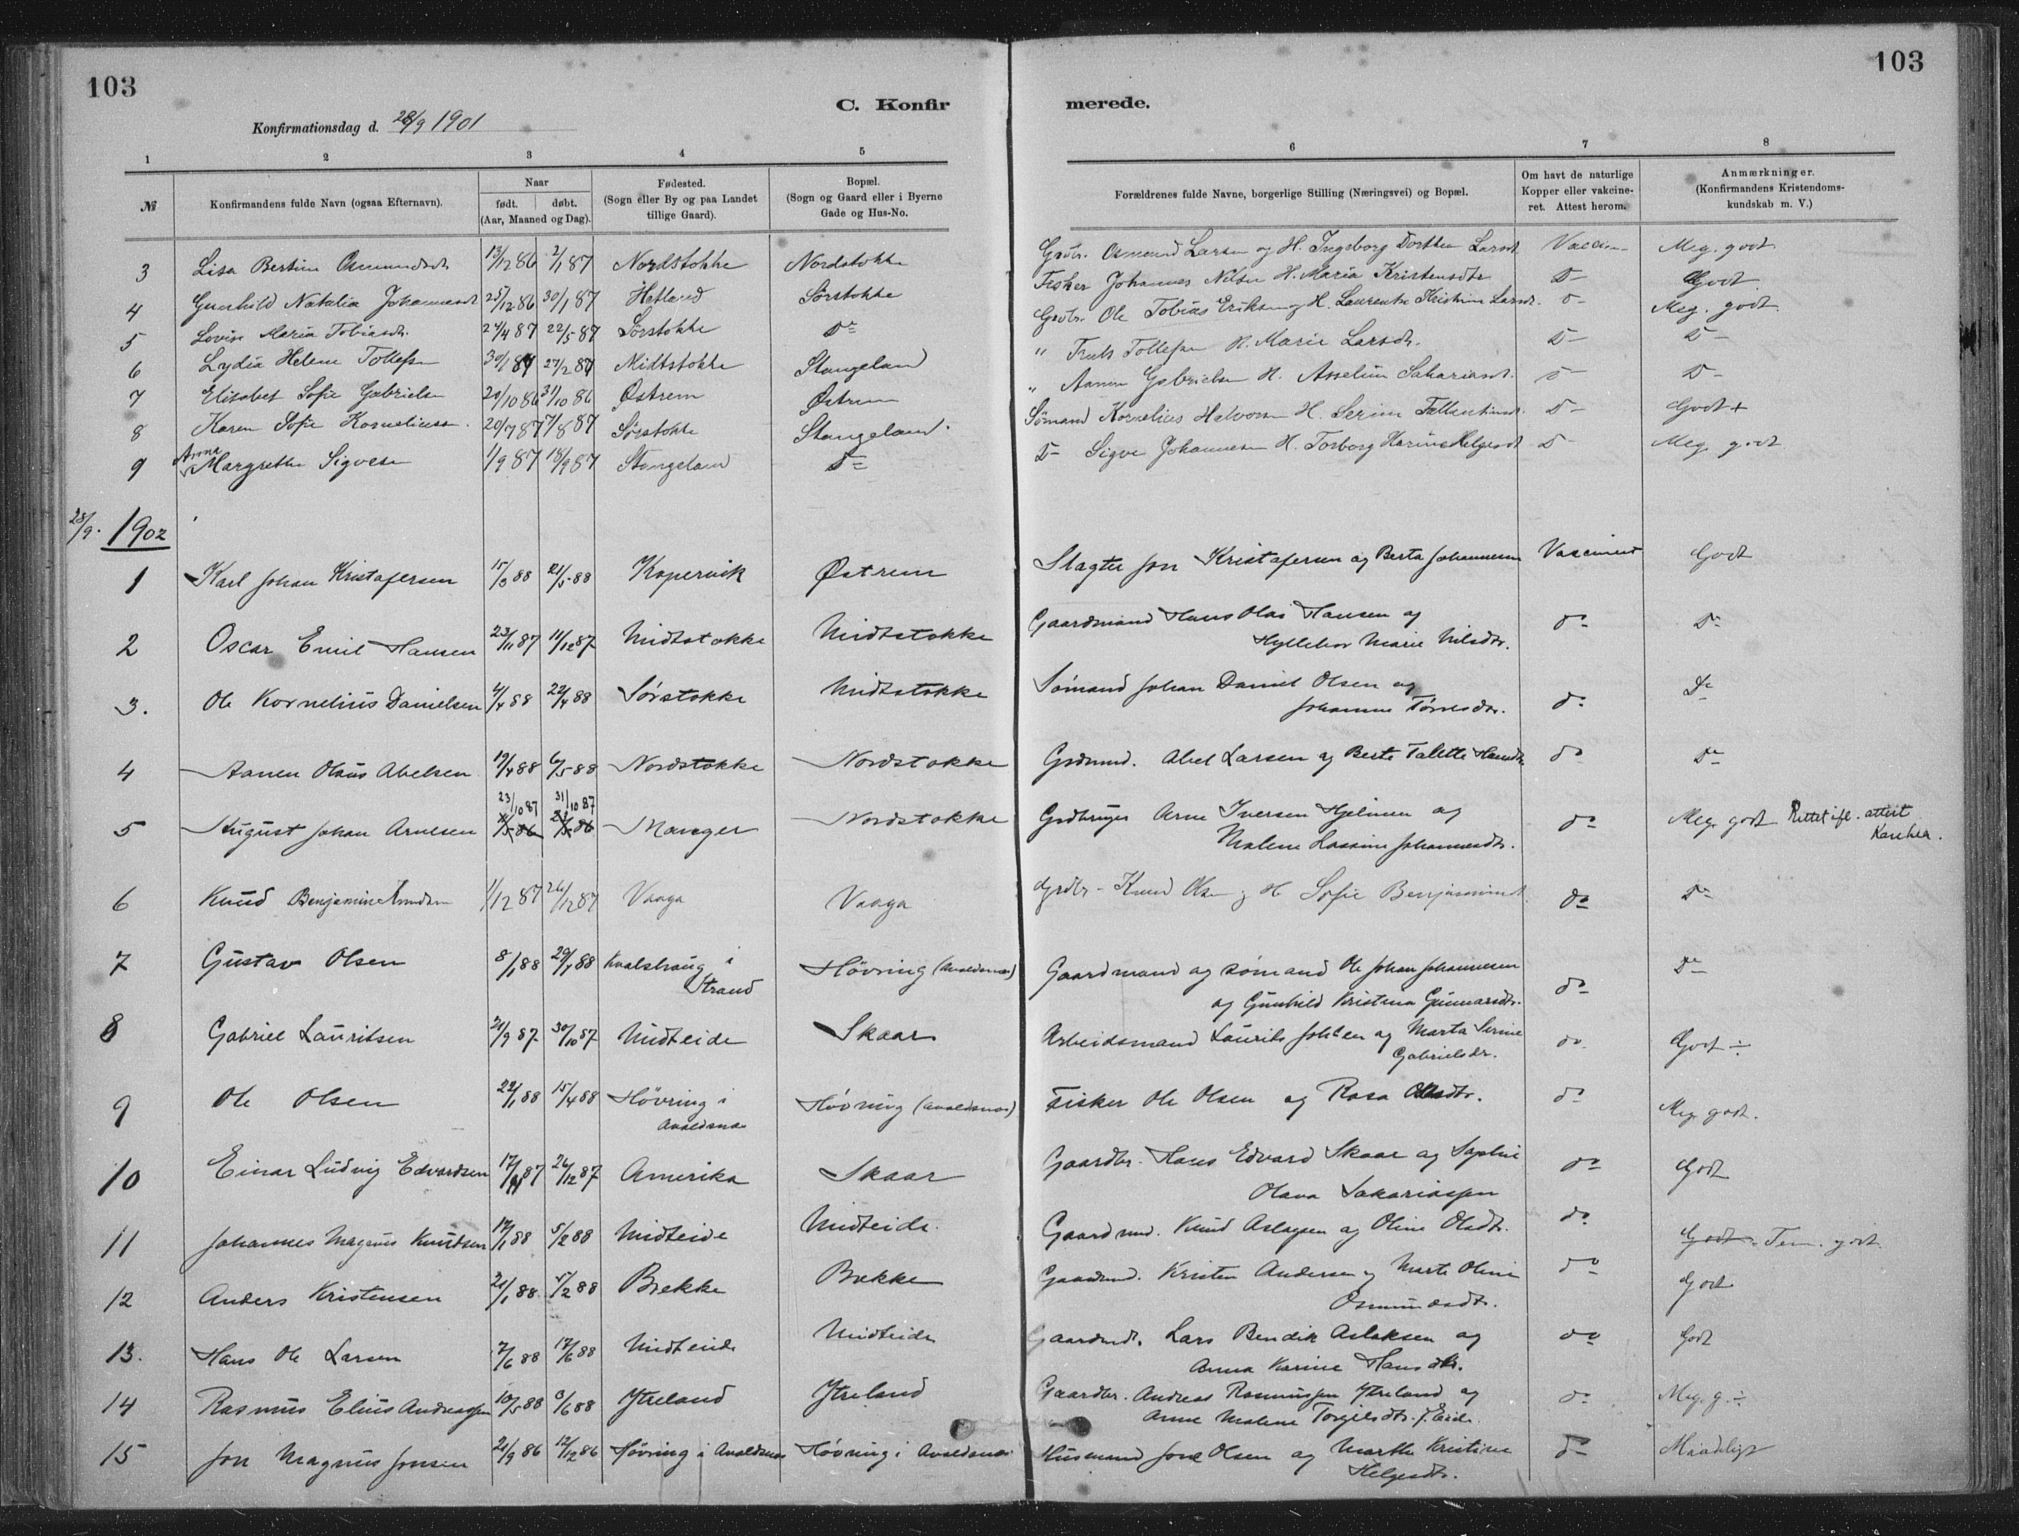 103
103
C. Konfir
merede.
Konfirmationsdag d. 28/9 1901
1 2 3 4 5 6 7 8
№
Konfirmandens fulde Navn (ogsaa Efternavn).
Naar
født. døbt.
(Aar, Maaned og Dag).
Fødested.
(Sogn eller By og paa Landet
tillige Gaard).
Bopæl.
(Sogn og Gaard eller i Byerne
Gade og Hus-No.
Forældrenes fulde Navne, borgerlige Stilling (Næringsvei) og Bopæl.
Om havt de naturlige
Kopper eller vakcine-
ret. Attest herom.
Anmærkninger.
(Konfirmandens Kristendoms-
kundskab m. V.)
3 Lisa Bertine Osmundsdt 13/12 86 2/1 87 Nordstokke Nordstokke Grdbr. Osmund Larsen og H. Ingeborg Dorthea Larsdt. Vaccin- Meg. godt
4 Gunhild Natalia Johannesdt 25/12 86 30/1 87 Hetland Sørstokke Fisker Johannes Nilsen H. Maria Kristensdtr D- Godt
5 Lovise Maria Tobiasdt. 24/4 87 22/5 87 Sørstokke Do Grdbr. Ole Tobias Eriksen og H. Laurentse Kristine Larsdt. D- Meg. godt
6 Lydia Helene Tollefsen 30/1 87 27/2 87 Midtstokke Stangeland " Tollefsen H. Marie Larsdt. D- D-
7 Elisabet Sofie Gabrielsen 20/10 86 31/10 86 Østrem Østrem " Aanen Gabrielsen H. Asseline Sakariasdt. D- D-
8 Karen Sofie Korneliussen 20/7 87 7/8 87 Sørstokke Stangeland. Sømand Kornelius Halvorsen H. Serine D- Godt +
9 Anna Margrethe Sigvesen 1/9 87 18/9 87 Stangeland Do D- Sigve Johannesen H. Torborg Karine Helgesdt D- Meg. godt
28/9. 1902
1 Karl Johan Kristofersen 15/3 88 21/5 88 Kopervik Østrem Slagter Jon Kristofersen og Berta Johannesen Vaccinert Godt
2 Oscar Emil Hansen 23/11 87 11/12 87 Midtstokke Midtstokke Gaardmand Hans Olai Hansen og
Hyllebor Marie Nilsdtr. do Do
3. Ole Kornelius Danielsen 4/4 88 22/4 88 Sørstokke Midtstokke Sømand Johan Daniel Olsen og
Johanne Tørresdtr. do Do
4 Aanen Olaus Abelsen 19/4 88 6/5 88 Nordstokke Nordstokke Grdmnd. Abel Larsen og Berte Talette Hansdtr do Do
23/10 87 31/10 87
5 August Johan Arnesen Manger Nordstokke Grdbruger Arne Iversen Hjelmen og
Malene Lassine Johannesdtr. do Meg. godt Rettet ifl. attest
6 Knud Benjamin Knudsen 1/12 87 26/12 87 Vaaga Vaaga Grdbr- Knud Olsen og H Sofie Benjaminsdt do Do
7 Gustav Olsen 8/1 88 29/1 88 Kvalshaug i
Strand Høvring (Avaldsnæs) Gaardmand og sømand Ole Johan Johannesen
og Gunhild Kristina Gunnarsdtr. do Do
8 Gabriel Lauritsen 21/9 87 30/10 87 Midteide Skaar Arbeidsmand Laurits Johnsen og Marta Serine
Gabrielsdr. do Godt ÷
9 Ole Olsen 22/1 88 15/4 88 Høvring i
Avaldsnæs Høvring (Avaldsnæs) Fisker Ole Olsen og Rasa Olsdtr. do Meg. godt.
10 Einar Ludvig Edvardsen 17/11 87 26/12 87 Amerika Skaar Gaardbr. Hans Edvard Skaar og Sophie
Olava Sakariassen do Godt
11 Johannes Magnus Knudsen 12/1 88 5/2 88 Midteide Midteide. Gaardmnd. Knud Aslagsen og Oline Olsdtr. do Godt Tem. godt.
12 Anders Kristensen 21/1 88 5/2 88 Brekke Brekke Gaardmnd. Kristen Andersen og Marte Oline
Osmundsdtr. do Godt
13. Hans Ole Larsen 7/6 88 17/6 88 Midteide Midteide Gaardmnd. Lars Bendik Aslaksen og
Anna Karine Hansdtr. do Godt
14 Rasmus Elius Andreassen 10/5 88 3/6 88 Ytreland Ytreland Gaardbr. Andreas Rasmussen Ytreland og
Anne Malene Torgilsdtr. f. Eide. do Meg. g. ÷
15 Jon Magnus Jonsen 21/9 86 12/12 86 Høvring i Avaldsnæs Høvring i Avaldsnæs Husmand Jone Olsen og Marthe Kristine
Helgesdtr. do Maadeligt